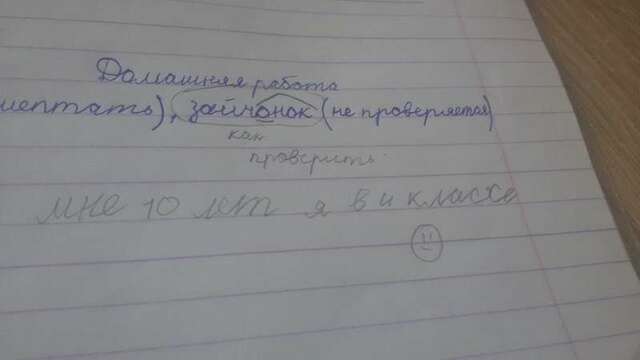 Домашняя работа
шептать), зайчонок (не проверяется)
как
проверить
мне 10 лет я в 4 классе